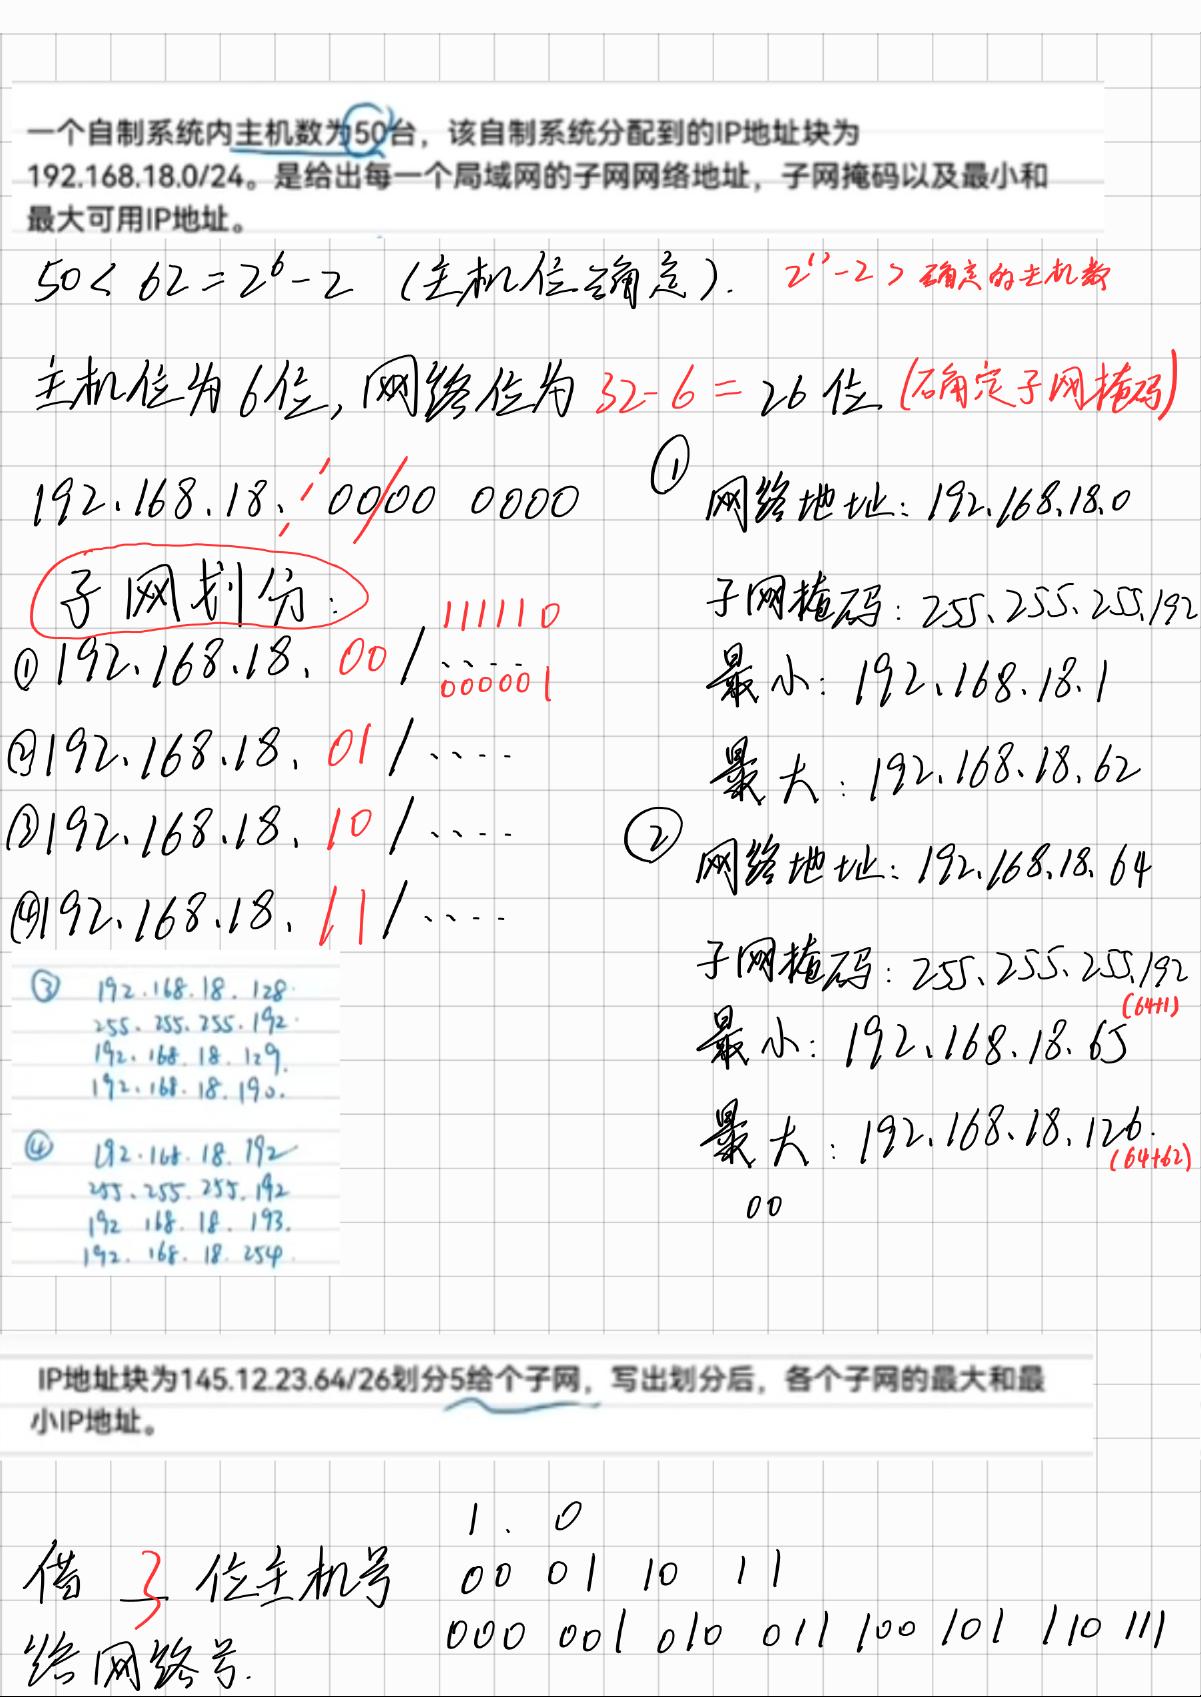 一个自制系统内主机数为50台，该自制系统分配到的IP地址块为
192.168.18.0/24。是给出每一个局域网的子网网络地址，子网掩码以及最小和
最大可用IP地址。
50 < 62 = 2^6 - 2 (主机位确定). 2^n - 2 > 确定的主机数
主机位为6位, 网络位为 32-6 = 26位 (确定子网掩码)
192.168.18. 0000 0000
子网划分:
111110
① 192.168.18. 00 / ....
000001
② 192.168.18. 01 / ....
③ 192.168.18. 10 / ....
④ 192.168.18. 11 / ....
①
网络地址: 192.168.18.0
子网掩码: 255.255.255.192
最小: 192.168.18.1
最大: 192.168.18.62
②
网络地址: 192.168.18.64
子网掩码: 255.255.255.192
(64+1)
最小: 192.168.18.65
最大: 192.168.18.126.
(64+62)
00
③ 192.168.18.128.
255.255.255.192.
192.168.18.129.
192.168.18.190.
④ 192.168.18.192
255.255.255.192
192 168.18.193.
192.168.18.254.
IP地址块为145.12.23.64/26划分5给个子网，写出划分后，各个子网的最大和最
小IP地址。
1. 0
借 3 位主机号 00 01 10 11
给网路号. 000 001 010 011 100 101 110 111